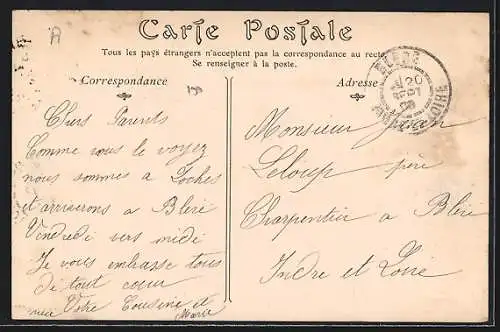 A
Carte Postale
Tous les pays étrangers n'acceptent pas la correspondance au recto
Se renseigner à la poste.
Correspondance
Adresse
Chers Parents
Comme vous le voyez
nous sommes a Loches
et arriverons a Bléré
Vendredi vers midi
Je vous embrasse tous
de tout cœur
Votre Cousine et
Marie
Monsieur Jean
Leloup père
Charpentier a Bléré
Indre et Loire